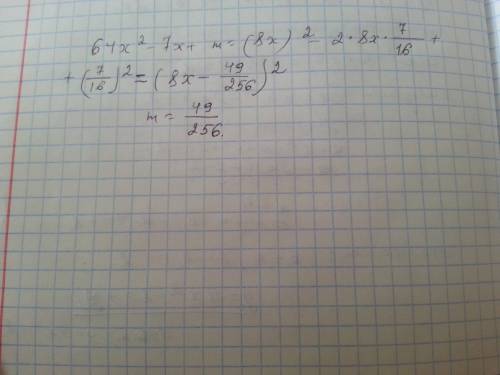 64x² - 7x + m = (8x)² - 2·8x·7/16 +
+ (7/16)² = (8x - 49/256)²
m = 49/256.